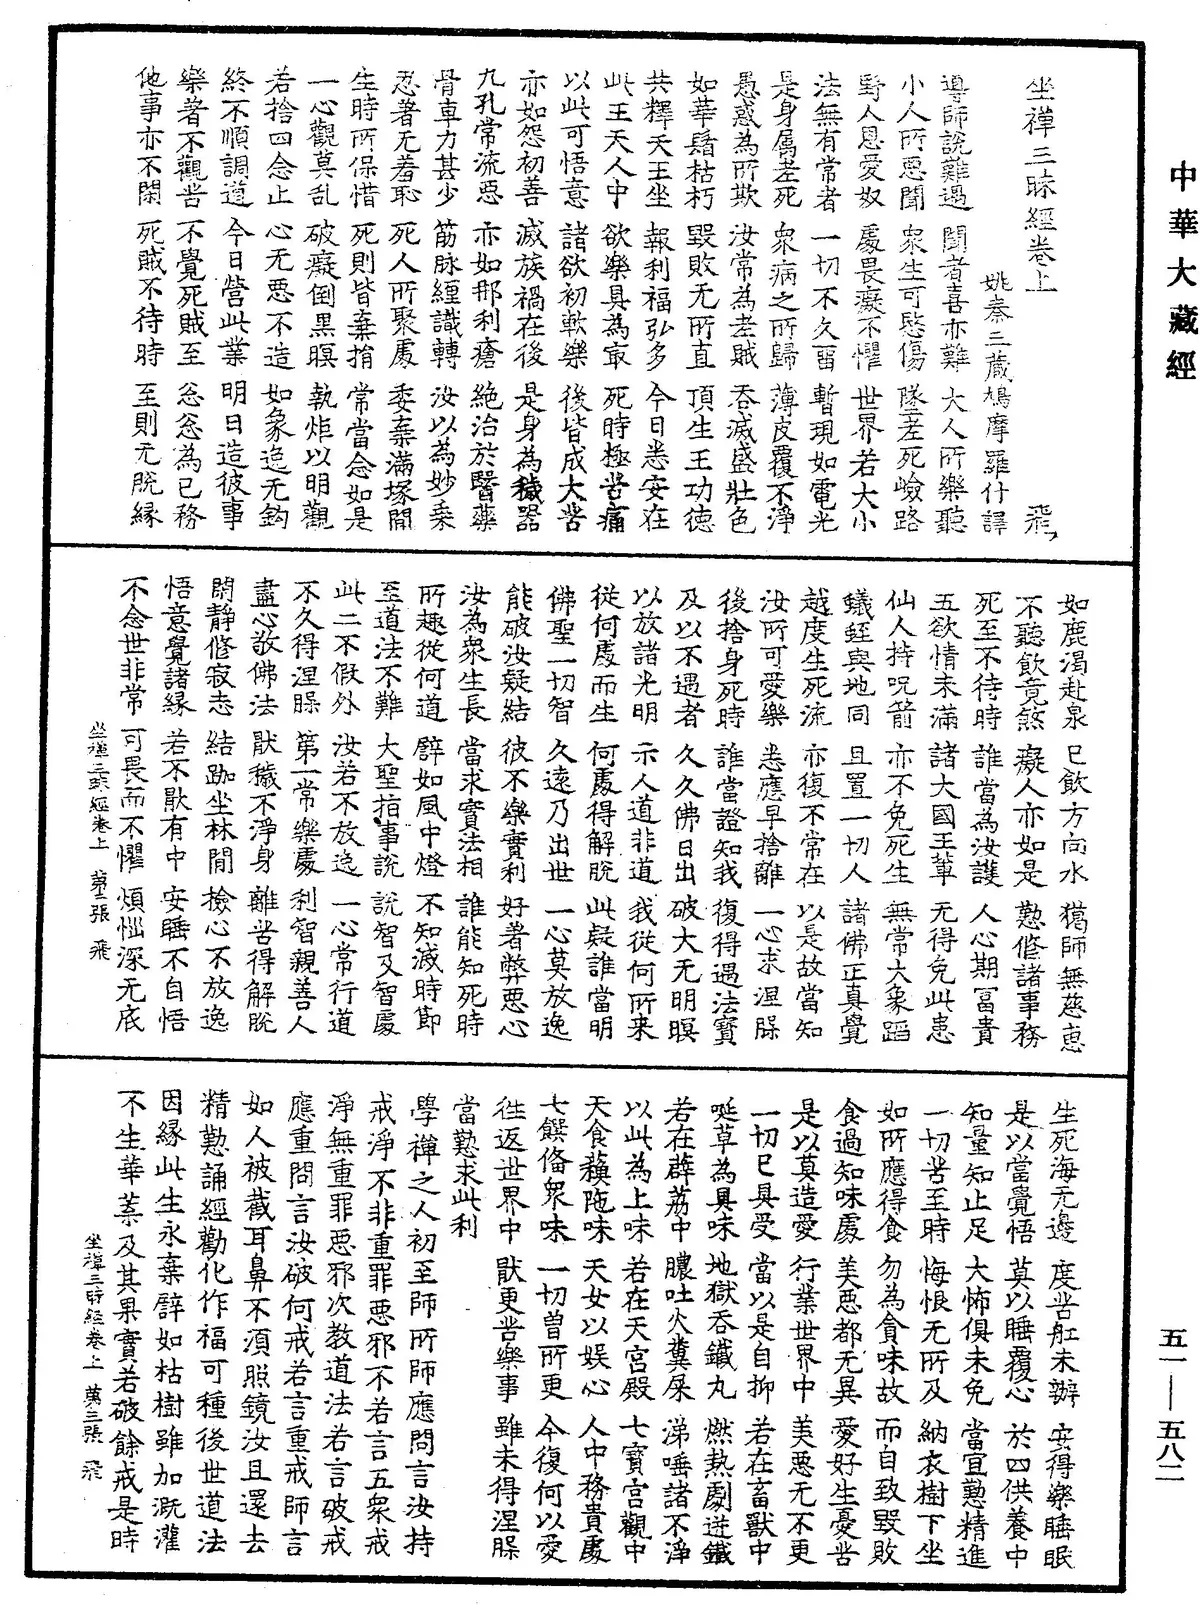 中華大藏經
坐禪三昧經卷上　飛
姚秦三藏鳩摩羅什譯
導師說難遇　聞者喜亦難　大人所樂聽
小人所惡聞　衆生可愍傷　墜老死嶮路
野人恩愛奴　處畏癡不懼　世界若大小
法無有常者　一切不久留　暫現如電光
是身屬老死　衆病之所歸　薄皮覆不淨
愚惑為所欺　汝常為老賊　吞滅盛壯色
如華鬘枯朽　毀敗无所直　頂生王功德
共釋天王坐　報利福弘多　今日悉安在
此王天人中　欲樂具為最　死時極苦痛
以此可悟意　諸欲初軟樂　後皆成大苦
亦如怨初善　滅族禍在後　是身為穢器
九孔常流惡　亦如那利瘡　絶治於醫藥
骨車力甚少　筋脉纏識轉　汝以為妙乘
忍著无羞恥　死人所聚處　委棄滿塚間
生時所保惜　死則皆棄捐　常當念如是
一心觀莫乱　破癡倒黑暝　執炬以明觀
若捨四念止　心无惡不造　如象逸无鈎
終不順調道　今日營此業　明日造彼事
樂著不觀苦　不覺死賊至　忩忩為己務
他事亦不閑　死賊不待時　至則无脫緣
如鹿渴赴泉　已飲方向水　獦師無慈惠
不聽飲竟煞　癡人亦如是　懃修諸事務
死至不待時　誰當為汝護　人心期冨貴
五欲情未滿　諸大國王輩　无得免此患
仙人持呪箭　亦不免死生　無常大象蹈
蟻蛭與地同　且置一切人　諸佛正真覺
越度生死流　亦復不常在　以是故當知
汝所可愛樂　悉應早捨離　一心求涅槃
後捨身死時　誰當證知我　復得遇法寶
及以不遇者　久久佛日出　破大无明暝
以放諸光明　示人道非道　我從何所来
從何處而生　何處得解脫　此疑誰當明
佛聖一切智　久遠乃出世　一心莫放逸
能破汝疑結　彼不樂實利　好著弊惡心
汝為衆生長　當求實法相　誰能知死時
所趣從何道　譬如風中燈　不知滅時節
至道法不難　大聖指事說　說智及智處
此二不假外　汝若不放逸　一心常行道
不久得涅槃　第一常樂處　利智親善人
盡心敬佛法　猒穢不淨身　離苦得解脫
閑靜修寂志　結跏坐林間　撿心不放逸
悟意覺諸緣　若不猒有中　安睡不自悟
不念世非常　可畏而不懼　煩惱深无底
坐禪三昧經卷上　第二張　飛
生死海无邊　度苦舡未辦　安得樂睡眠
是以當覺悟　莫以睡覆心　於四供養中
知量知止足　大怖俱未免　當宜懃精進
一切苦至時　悔恨无所及　納衣樹下坐
如所應得食　勿為貪味故　而自致毀敗
食過知味處　美惡都无異　愛好生憂苦
是以莫造愛　行業世界中　美惡无不更
一切已具受　當以是自抑　若在畜獸中
唌草為具味　地獄吞鐵丸　燃熱劇迸鐵
若在薜荔中　膿吐火糞屎　涕唾諸不淨
以此為上味　若在天宮殿　七寶宮觀中
天食蘓陁味　天女以娛心　人中務貴處
七饌俻衆味　一切曽所更　今復何以愛
往返世界中　猒更苦樂事　雖未得涅槃
當懃求此利
學禪之人初至師所師應問言汝持
戒淨不非重罪惡邪不若言五衆戒
淨無重罪惡邪次教道法若言破戒
應重問言汝破何戒若言重戒師言
如人被截耳鼻不湏照鏡汝且還去
精懃誦經勸化作福可種後世道法
因緣此生永棄譬如枯樹雖加溉灌
不生華葉及其果實若破餘戒是時
坐禪三昧經卷上　第三張　飛
五一—五八二